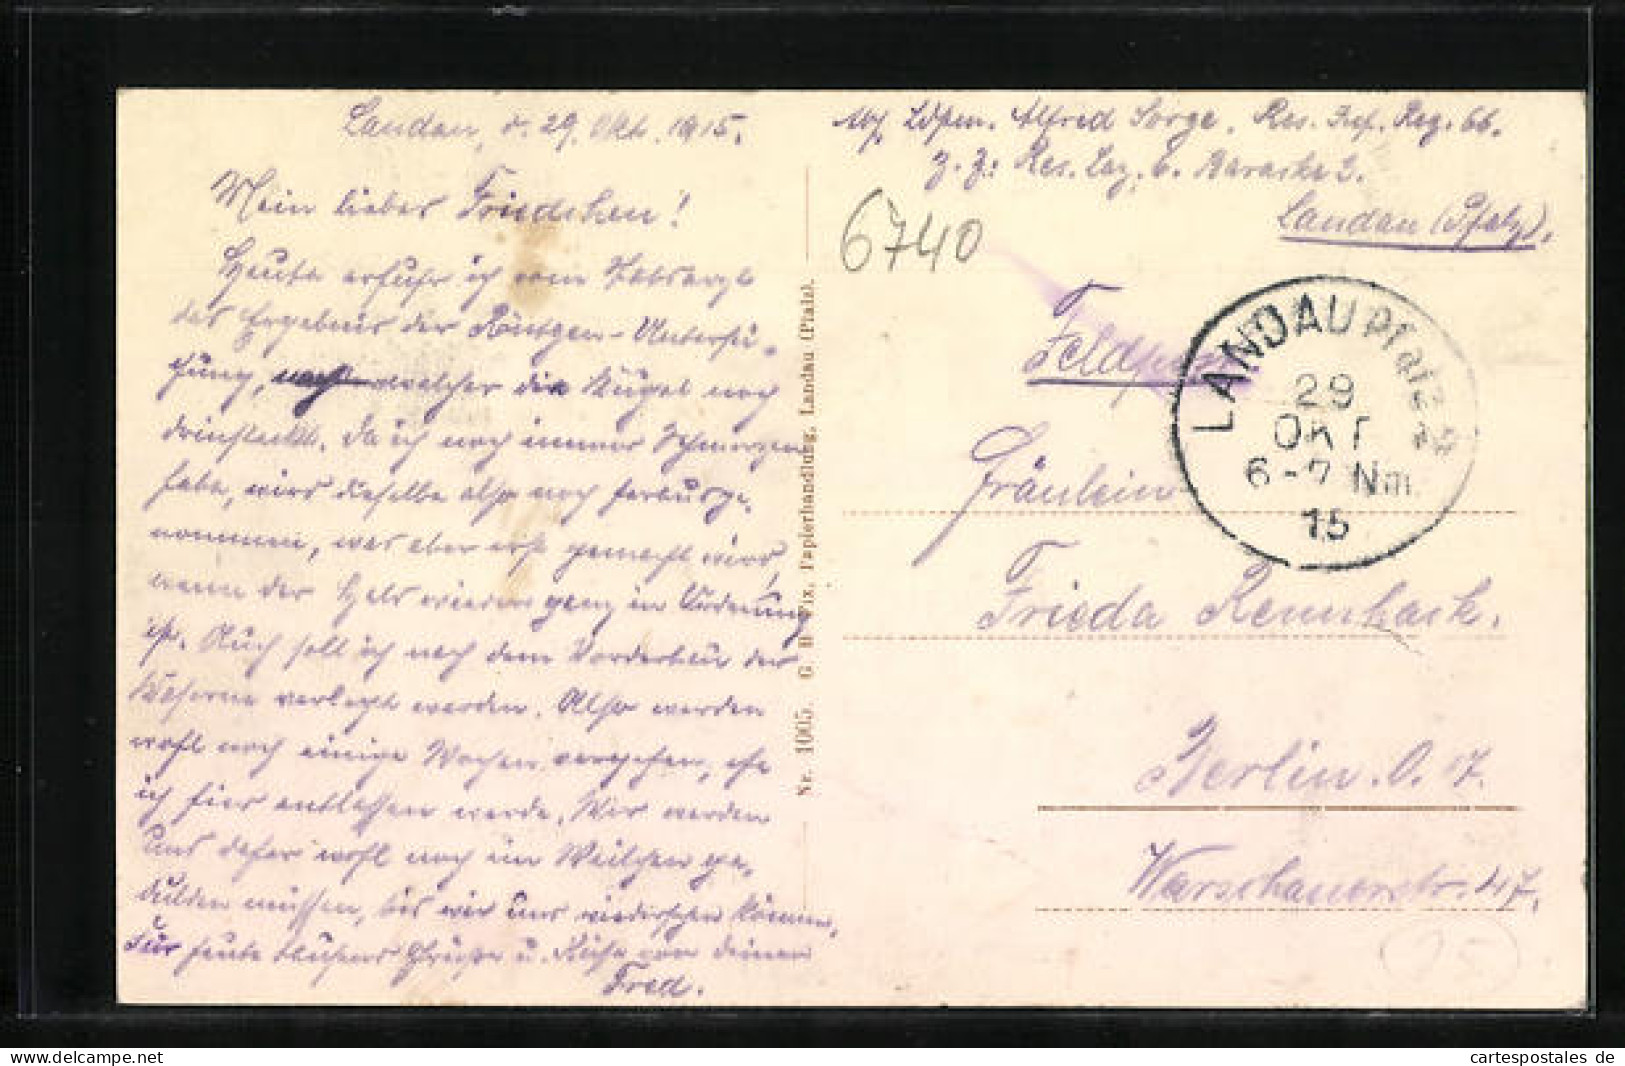 Landau, d. 29. Okt. 1915.
Mein liebes Friedchen!
Heute erfuhr ich vom Stabsarzt
das Ergebnis der Röntgen-Untersu-
chung, nach welcher die Kugel noch
drinsteckt. Da ich noch immer Schmerzen
habe, wird dieselbe also noch herausge-
nommen, was aber erst gemacht wird,
wenn der Hals wieder ganz in Ordnung
ist. Auch soll ich nach dem Vorderbau der
Kaserne verlegt werden. Also werden
wohl noch einige Wochen vergehen, ehe
ich hier entlassen werde. Wir werden
uns daher wohl noch ein Weilchen ge-
dulden müssen, bis wir uns wiedersehen können.
Für heute tausend Grüße u. Küsse von deinem
Fred.
Nr. 1005. G. B. Fix, Papierhandlung, Landau (Pfalz).
Abs. Ldstm. Alfred Sorge. Res. Inf. Reg. 66.
z. Z: Res. Laz. 6. Baracke 2.
Landau (Pfalz).
6740
Feldpost
LANDAU Pfalz 2
29
OKT
6-7 Nm.
15
Fräulein
Frieda Rennhack.
Berlin. O. 17.
Warschauerstr. 47.
25
cartespostales de